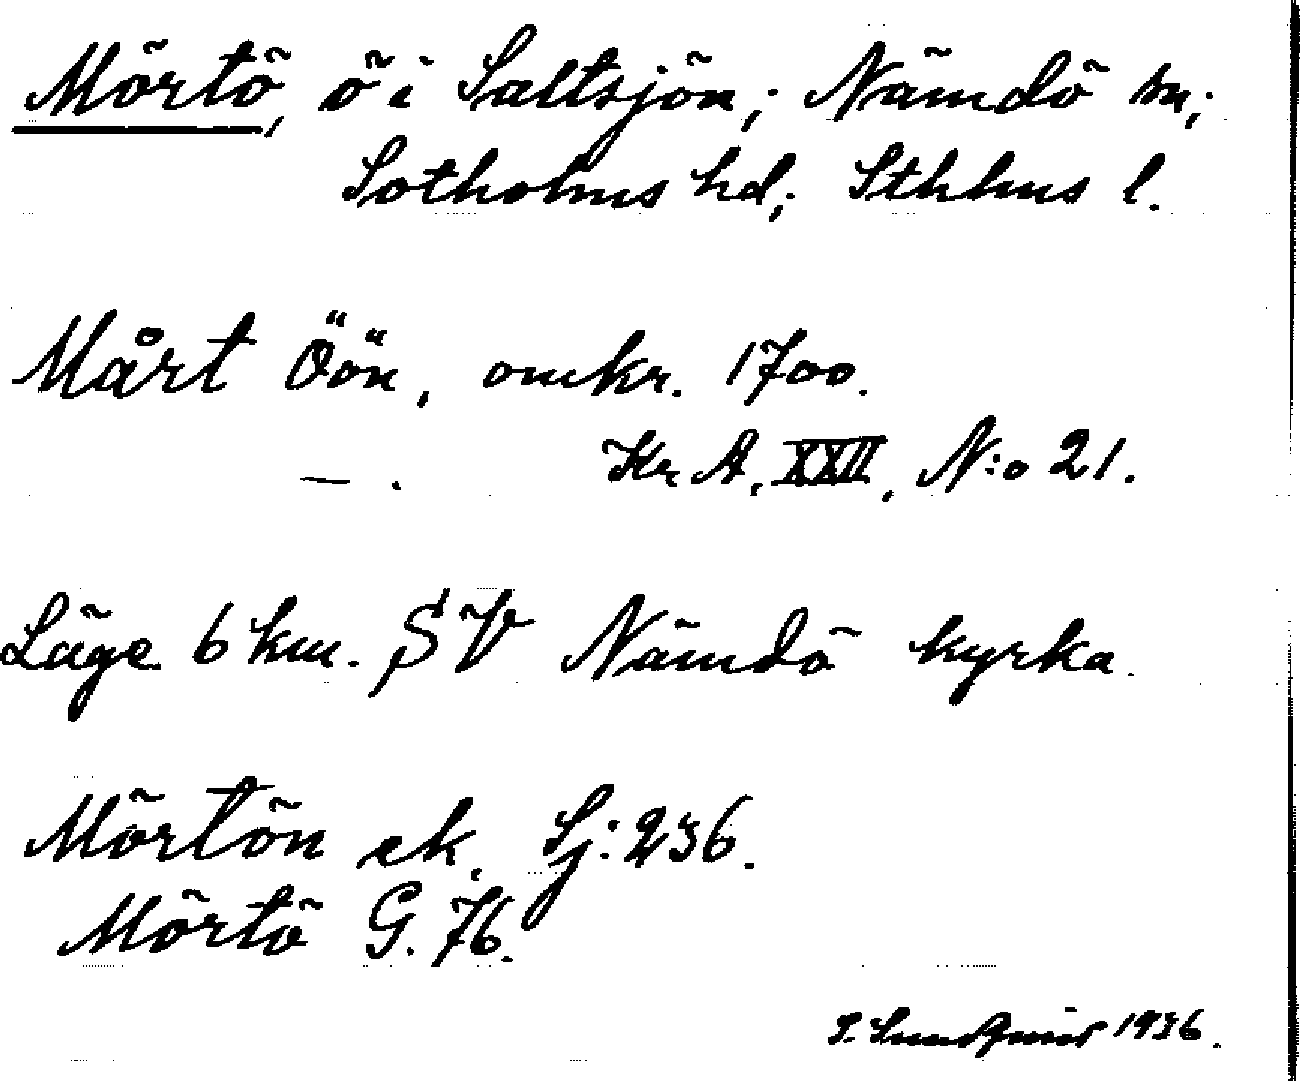 Mörtö, ö i Saltsjön; Nämdö sn;
Sotholms hd; Sthlms l.
Mårt Öön, omkr. 1700.
— . Kr. A. XXII, N:o 21.
Läge 6 km. SV Nämdö kyrka.
Mörtön ek. Sj: 236.
Mörtö G. 76.
S. Lundqvist 1936.